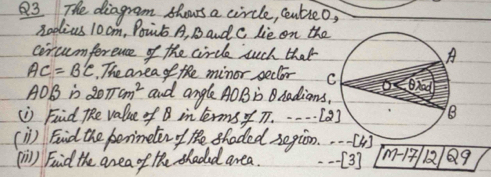 Q3 The diagram shows a circle, centre O,
radius 10cm, Points A, B and C lie on the
circumference of the circle such that
AC = BC, The area of the minor sector
AOB is 20π cm² and angle AOB is θ radians.
(i) Find the value of θ in terms of π. ----[2]
(ii) Find the perimeter of the shaded region. ---[4]
(iii) Find the area of the shaded area. ---[3]
M-17/12/Q9
A
C
O
θ rad
B